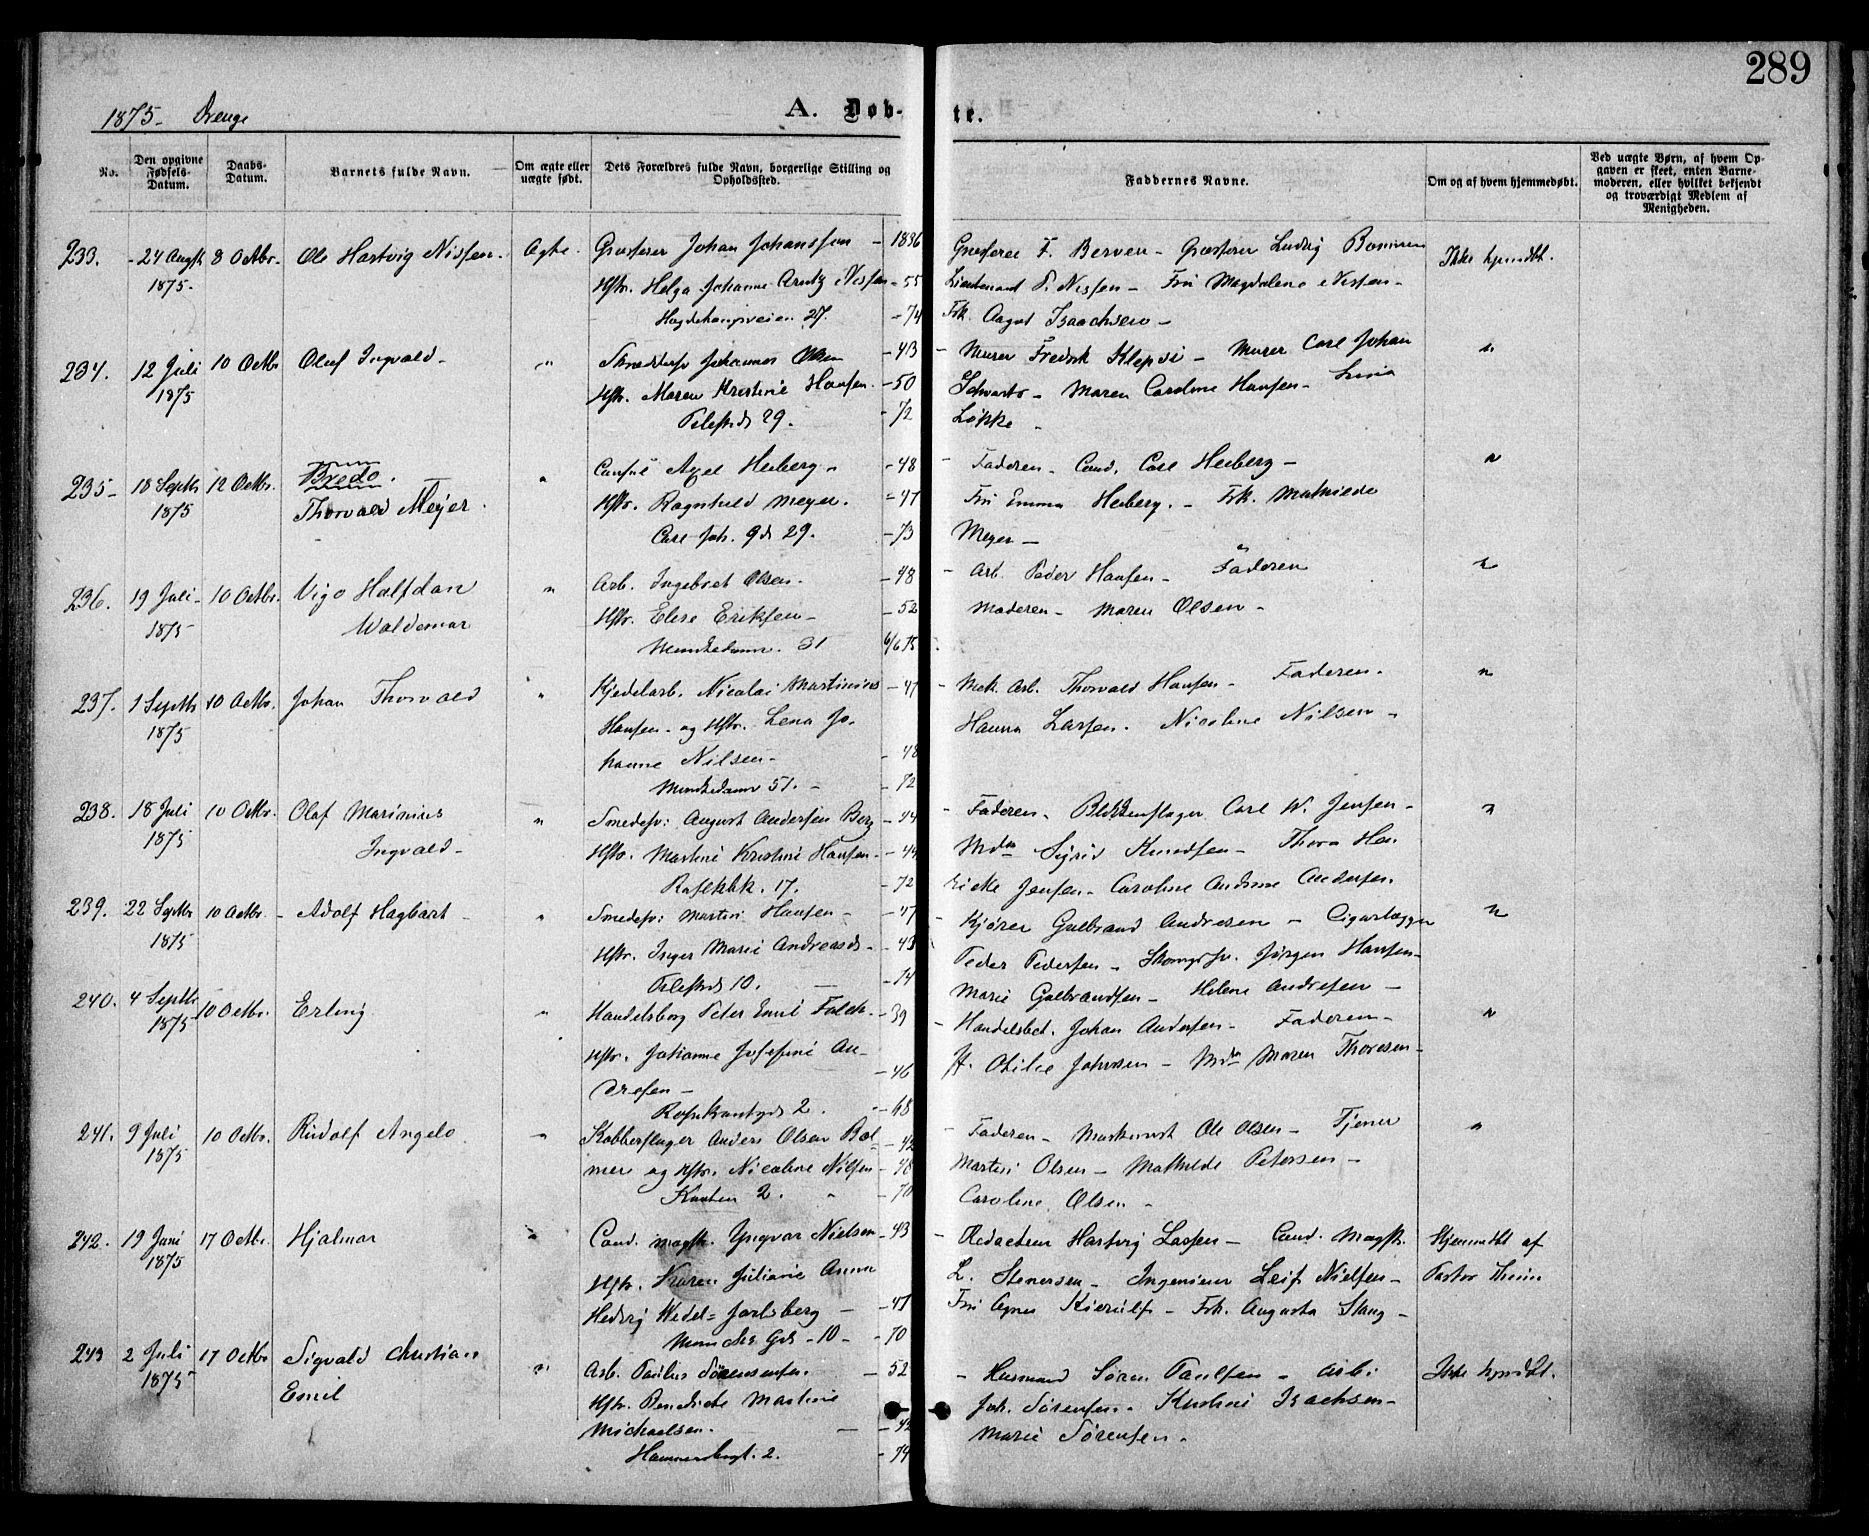 289
1875. Drenge
A. Døb-te.
No.
Den opgivne Fødsels-Datum.
Daabs-Datum.
Barnets fulde Navn.
Om ægte eller uægte født.
Dets Forældres fulde Navn, borgerlige Stilling og Opholdssted.
Faddernes Navne.
Om og af hvem hjemmedøbt.
Ved uægte Børn, af hvem Op-
gaven er skeet, enten Barne-
moderen, eller hvilket bekjendt
og troværdigt Medlem af
Menigheden.
233. 24 Augst 8 Octbr. Ole Hartvig Nissen. Ægte. Grosserer Johan Johanssen - 1836 Grosserer F. Berven - Grosserer Ludvig Ikke hjmdbt.
1875. Hstr. Helga Johanne Arntz Nissen - 55 Lieutenant P. Nissen - Fru Magdalene Nissen -
27. - 74 Frk. Aagot Isaachsen -
234. 12 Juli 10 Octbr Oluf Ingvald - " Johannes Olsen - 43 - Murer Fredrik - Murer Carl Johan "
1875 Hstr. Maren Kristine Hansen. - 50 Schwartz - Maren Caroline Hansen -
Pilestrd 29. - 72 Løkke -
235 - 18 Septbr 12 Octbr. Bredo. " Consul Axel Heiberg - - 48 - Faderen - Cand. Carl Heiberg - "
1875 Thorvald Meyer. Hstr. Ragnhild Meyer. - 47 Fru Emma Heiberg. - Frk. Mathilde
Carl Joh. Gd 29. - 73 Meyer -
236. 19 Juli - 10 Octbr. Vigo Halfdan " Arb. Ingebret Olsen. - 48 - Arb. Peder Hansen - Faderen "
1875 Waldemar Hstr. Elise Eriksen - - 52 Moderen - Maren Olsen -
Munkedamv. 31 6/6 75
237. 1 Septbr 10 Octbr. Johan Thorvald " Kjedelarb. Nicolai Martinius - 47 - Mek. Arb. Thorvald Hansen - Faderen - "
1875 Hansen - og Hstr. Lena Jo- Hanna Larsen. Nicoline Nilsen -
hanne Nilsen - - 48
Munkedamv 51. - - 72
238. 18 Juli 10 Octbr. Olaf Marinius " Smedesv: August Andersen Berg - 44 - Faderen - Blikkenslager Carl W. Jensen - "
1875 Ingvald - Hstr. Martine Kristine Hansen - - 44 Mdm Sigrid Knudsen - Thora Hen
17. - 72 ricke Jensen - Caroline Andrine Andersen.
239. 22 Septbr 10 Octbr. - Adolf Hagbart - " Smedesv: Martin Hansen - - 47 - Kjører Gulbrand Andresen - Cigarlægger "
1875 Hstr. Inger Marie Andreasds - - 43 Peder Pedersen - Skomgrsv. Jürgen Hansen -
Pilestrd 10. - 74 Marie Gulbrandsen - Helene Andresen -
240. 4 Septbr 10 Octbr. Erling " Handelsborg Peter Emil Falck. - 39 - Handelsbet. Johan Andersen - Faderen - "
1875 Hstr. Johanne Josefine An- Otilie Johnsen - Mdm Maren Thoresen -
dresen - - 46
Rosenkrantzgd 2. - 68
241. 9 Juli 10 Octbr. Rudolf Angelo " Kobberslager Anders Olsen Bol- - 42 - Faderen - Maskinist Ole Olsen - Tjener "
1875 mere og Hstr. Nicoline Nilsen - 48 Martin Olsen - Mathilde Petersen -
2. - 70 Caroline Olsen -
242. 19 Juni 17 Octbr. Hjalmar " Cand. magst. Yngvar Nielsen - 43 - Redacteur Hartvig Lassen - Cand. Magst. Hjemmedbt af
1875 Hstr. Karen Juliane Anna L. Stenersen - Ingeniør Leif Nielsen - Pastor
Hedvig Wedel=Jarlsberg - - 47 Fru Agnes Kierulf - Frk. Augusta Stang -
Gd - 10 - - 70
243 2 Juli 17 Octbr Sigvald Christian " Arb. Paulus Sørensen. - 52 - Husmand Søren Paulsen - Arb: Ikke hjmdbt.
1875 Emil Hstr. Benedicte Martine Joh. Sørensen - Kristine Isachsen -
Michaelsen. - - 42 Marie Sørensen -
2. - 74